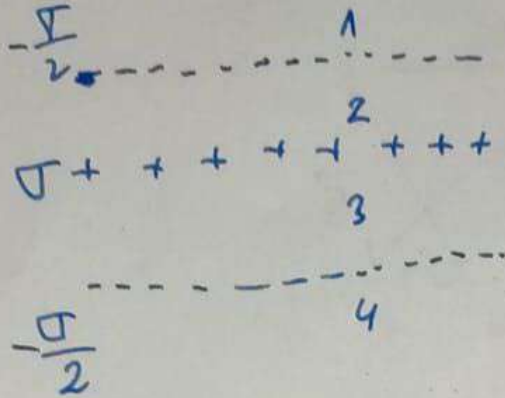 -σ/2 - - - - - - - - - -
1
2
σ + + + + + + + +
3
- - - - - - - - - - - -
4
-σ/2